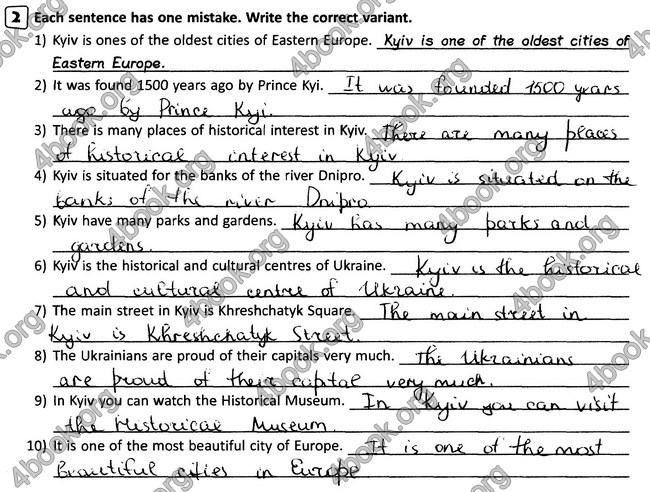 2 Each sentence has one mistake. Write the correct variant.
1) Kyiv is ones of the oldest cities of Eastern Europe. Kyiv is one of the oldest cities of
Eastern Europe.
2) It was found 1500 years ago by Prince Kyi. It was founded 1500 years
ago by Prince Kyi.
3) There is many places of historical interest in Kyiv. There are many places
of historical interest in Kyiv.
4) Kyiv is situated for the banks of the river Dnipro. Kyiv is situated on the
banks of the river Dnipro.
5) Kyiv have many parks and gardens. Kyiv has many parks and
gardens.
6) Kyiv is the historical and cultural centres of Ukraine. Kyiv is the historical
and cultural centre of Ukraine.
7) The main street in Kyiv is Khreshchatyk Square. The main street in
Kyiv is Khreshchatyk Street.
8) The Ukrainians are proud of their capitals very much. The Ukrainians
are proud of their capital very much.
9) In Kyiv you can watch the Historical Museum. In Kyiv you can visit
the Historical Museum.
10) It is one of the most beautiful city of Europe. It is one of the most
beautiful cities in Europe
4book.org